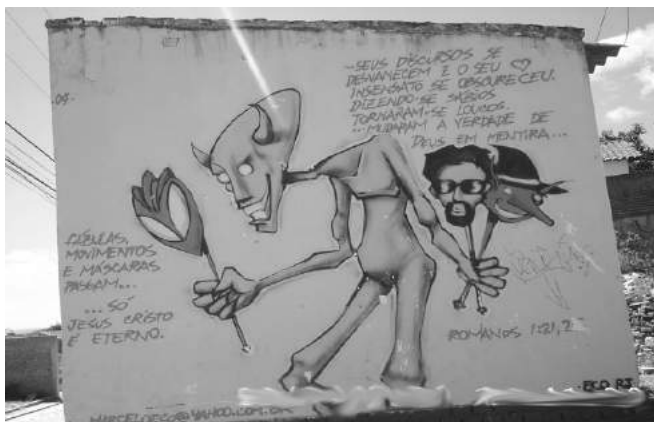 -09-
-SEUS DISCURSOS SE
DESVANECEM E O SEU ♡
INSENSATO SE OBSCURECEU.
DIZENDO-SE SÁBIOS
TORNARAM-SE LOUCOS.
...MUDARAM A VERDADE DE
DEUS EM MENTIRA...
FÁBULAS,
MOVIMENTOS
E MÁSCARAS
PASSAM...
...SÓ
JESUS CRISTO
É ETERNO.
ROMANOS 1:21,2
-ECO RJ
MARCELOECO@YAHOO.COM.BR